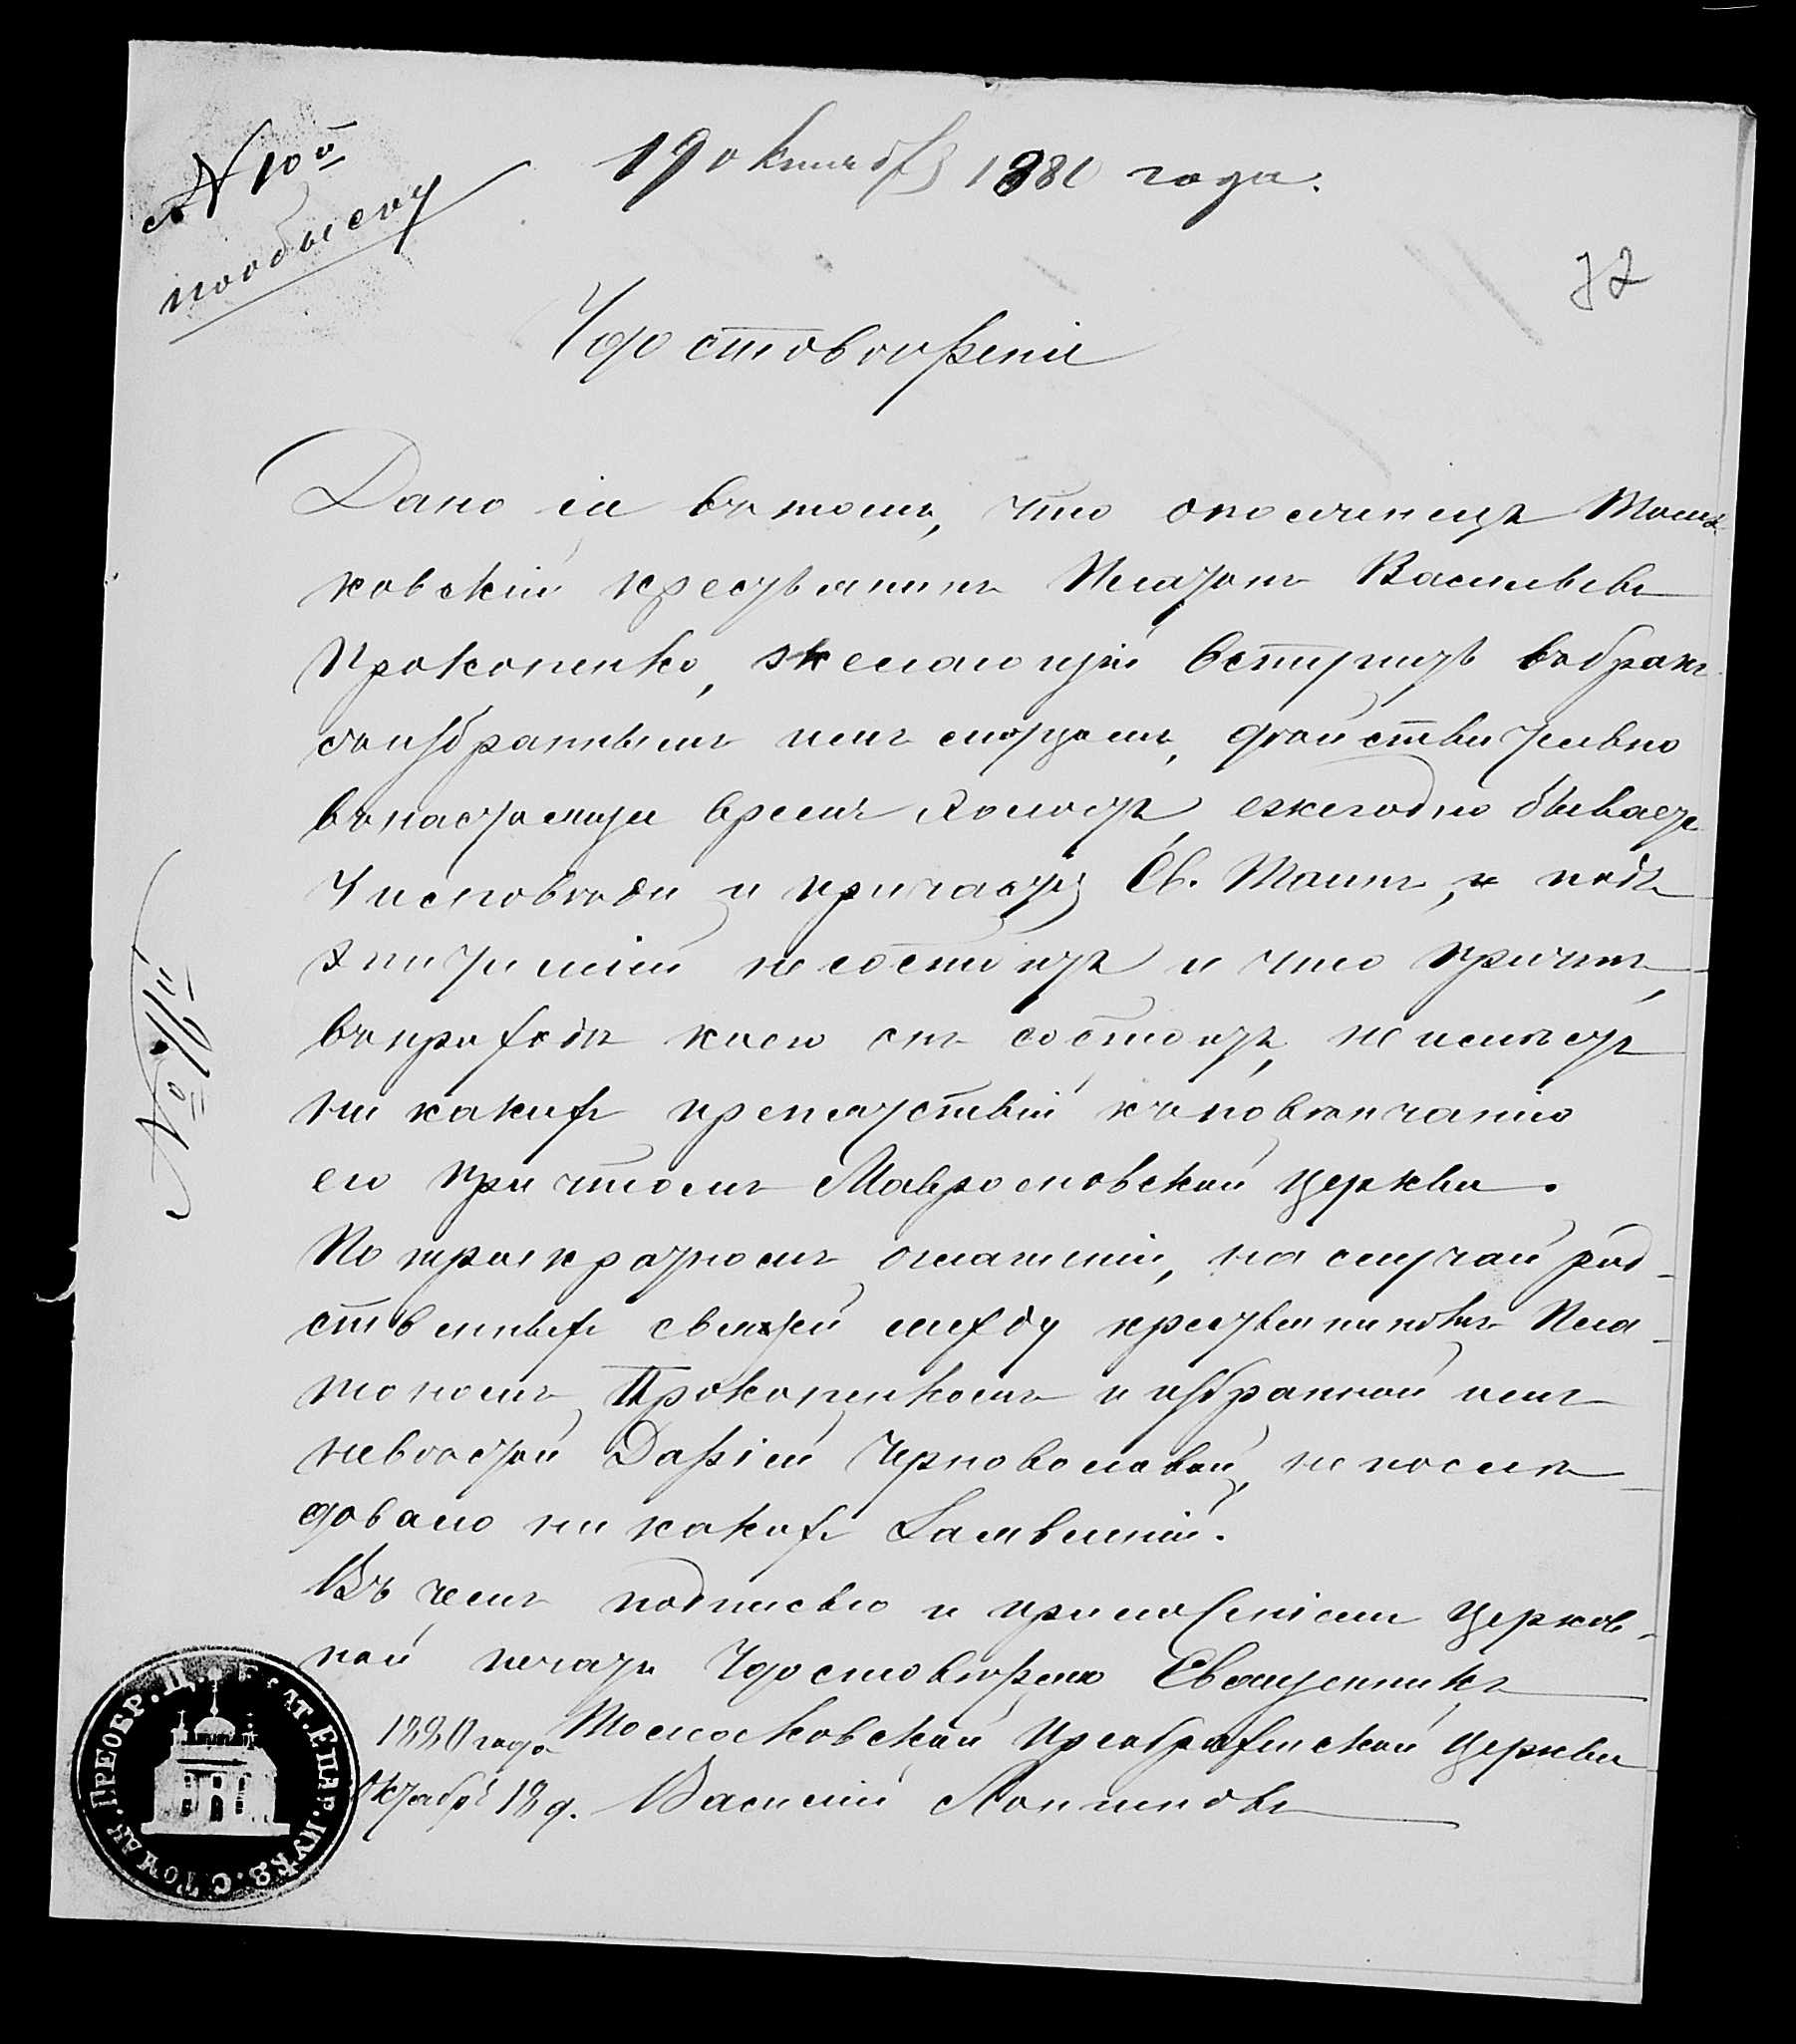 N 10й
пообыску
19 октября 1880 года.
72
Удостовѣреніе
Дано сіе вътомъ, что ополчинецъ Тома-
ковскій крестьянинъ Платонъ Васильевъ
Прокопенко, желающій вступить вобракъ
сънзбраннымъ имъ лицемъ, дѣйствительно
внастоящее время холостъ, ежегодно бываетъ
У исповѣди и причастія Св. Таинъ, и подъ
Эпитиміей несостоитъ и что причтъ,
въприходѣ коего онъ состоитъ, неимѣетъ
ни какихъ препятствій къповѣнчанію
его причтомъ Мавромовской церкви.
По троекратномъ оглашеніи, на случай род-
ственныхъ связей между крестьяниномъ Пла-
тономъ Прокопенкомъ и избранной имъ
невѣстой Даріей Черноволовой, непослѣ-
довало ни какихъ Заявленій.
Въ чемъ подписью и приложеніемъ церков-
ной печати Удостовѣряю Священникъ
1880 года Томаковской Преображенской церкви
Октября 18 д. Василій Логиновъ
№ 416й
ПРЕОБР. Ц. ЕКАТ. ЕПАР. И УѢЗ. С. ТОМАК.